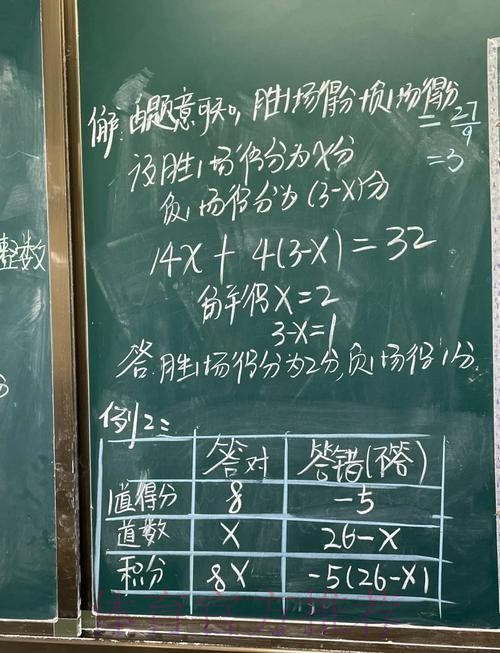 解:由题意可知,胜1场得分 负1场得分
= 27/9
= 3
设胜1场得分为x分
负1场得分为(3-x)分
14x + 4(3-x) = 32
解得x=2
3-x=1
答:胜1场得分为2分,负1场得1分.
整数
例2:
答对 答错(不答)
值得分 8 -5
道数 x 26-x
积分 8x -5(26-x)